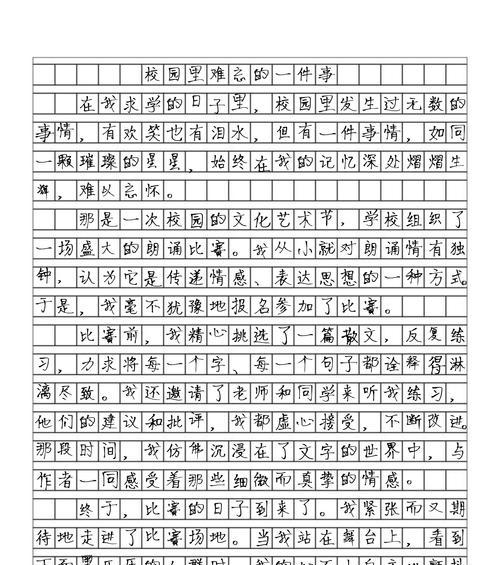 校园里难忘的一件事
在我求学的日子里，校园里发生过无数的
事情，有欢笑也有泪水，但有一件事情，如同
一颗璀璨的星星，始终在我的记忆深处熠熠生
辉，难以忘怀。
那是一次校园的文化艺术节，学校组织了
一场盛大的朗诵比赛。我从小就对朗诵情有独
钟，认为它是传递情感、表达思想的一种方式。
于是，我毫不犹豫地报名参加了比赛。
比赛前，我精心挑选了一篇散文，反复练
习，力求将每一个字、每一个句子都诠释得淋
漓尽致。我还邀请了老师和同学来听我练习，
他们的建议和批评，我都虚心接受，不断改进。
那段时间，我仿佛沉浸在了文字的世界中，与
作者一同感受着那些细微而真挚的情感。
终于，比赛的日子到来了。我紧张而又期
待地走进了比赛场地。当我站在舞台上，看到